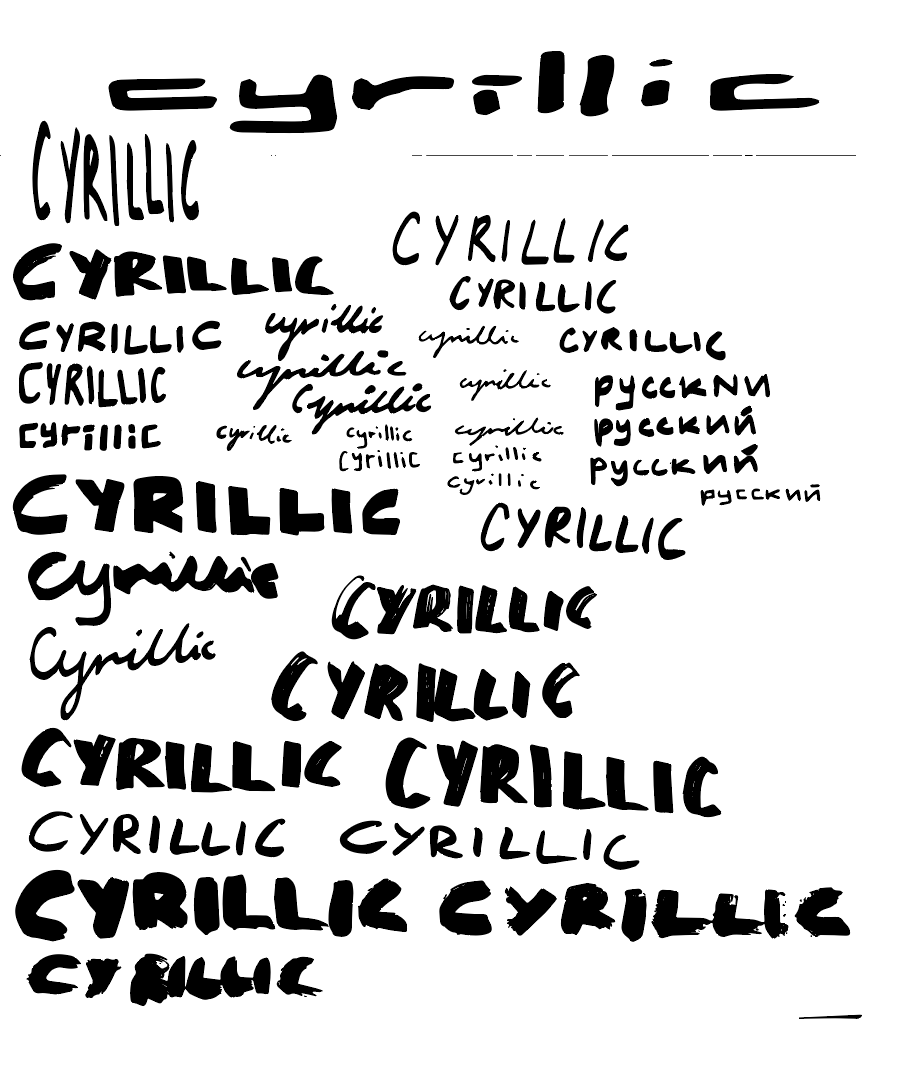 cyrillic
CYRILLIC
CYRILLIC
CYRILLIC
CYRILLIC
cyrillic
CYRILLIC
cyrillic
CYRILLIC
cyrillic
CYRILLIC
cyrillic
русскNи
Cyrillic
русский
cyrillic
cyrillic
cyrillic
cyrillic
русский
cyrillic
cyrillic
cyrillic
русский
CYRILLIC
CYRILLIC
Cyrillic
CYRILLIC
Cyrillic
CYRILLIC
CYRILLIC CYRILLIC
CYRILLIC CYRILLIC
CYRILLIC CYRILLIC
CYRILLIC